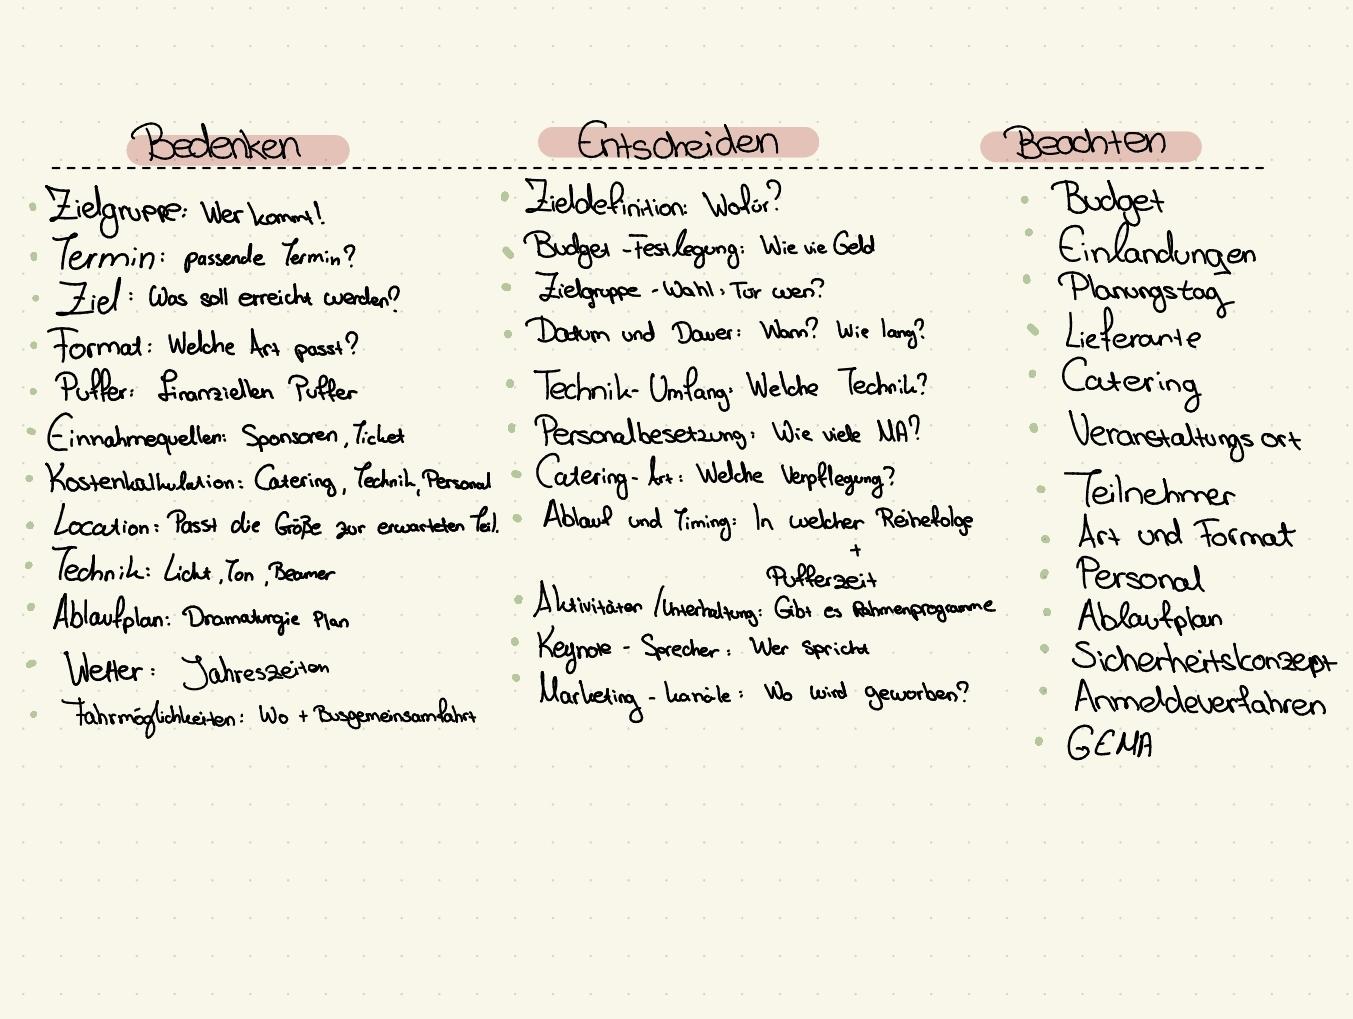 Bedenken
Zielgruppe: Wer kommt!
Termin: passende Termin?
Ziel: Was soll erreicht werden?
Format: Welche Art passt?
Puffer: finanziellen Puffer
Einnahmequellen: Sponsoren, Ticket
Kostenkalkulation: Catering, Technik, Personal
Location: Passt die Größe zur erwarteten Teil.
Technik: Licht, Ton, Beamer
Ablaufplan: Dramaturgie Plan
Wetter: Jahreszeiten
Fahrmöglichkeiten: Wo + Busgemeinsamfahrt
Entscheiden
Zieldefinition: Wofür?
Budget-Festlegung: Wie vie Geld
Zielgruppe-Wahl: Für wen?
Datum und Dauer: Wann? Wie lang?
Technik-Umfang: Welche Technik?
Personalbesetzung: Wie viele MA?
Catering-Art: Welche Verpflegung?
Ablauf und Timing: In welcher Reihefolge
+
Pufferzeit
Aktivitäten / Unterhaltung: Gibt es Rahmenprogramme
Keynote - Sprecher: Wer spricht
Marketing - kanäle: Wo wird geworben?
Beachten
Budget
Einlandungen
Planungstag
Lieferante
Catering
Veranstaltungsort
Teilnehmer
Art und Format
Personal
Ablaufplan
Sicherheitskonzept
Anmeldeverfahren
GEMA